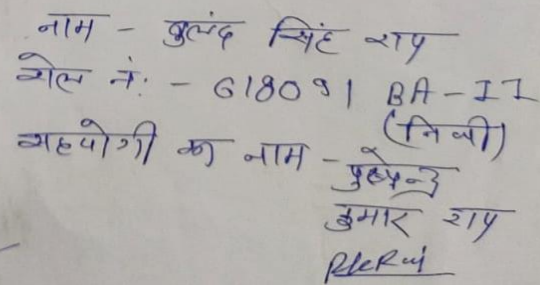 नाम - बुलंद सिंह राय
रोल नं: - 618091 BA-II
(निजी)
सहयोगी का नाम - पुष्पेन्द्र
कुमार राय